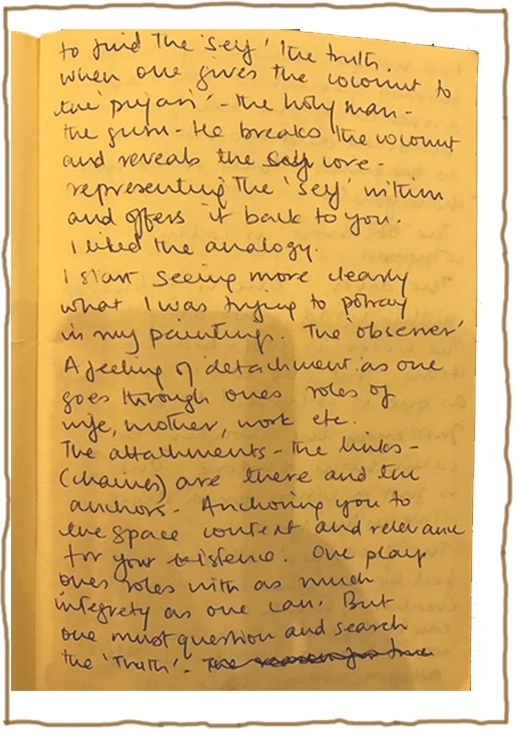 to find the 'self' the truth.
when one gives the coconut to
the 'pujari' - the holy man -
the guru - He breaks the coconut
and reveals the self core -
representing the 'self' within
and offers it back to you.
I liked the analogy.
I start seeing more clearly
what I was trying to potray
in my painting. The observer'
A feeling of detachment as one
goes through ones roles of
wife, mother, work etc.
The attachments - the links -
(chains) are there and the
anchors - Anchoring you to
the space content and relevance
for your existence. One plays
ones roles with as much
integrety as one can. But
one must question and search
the 'Truth'. The